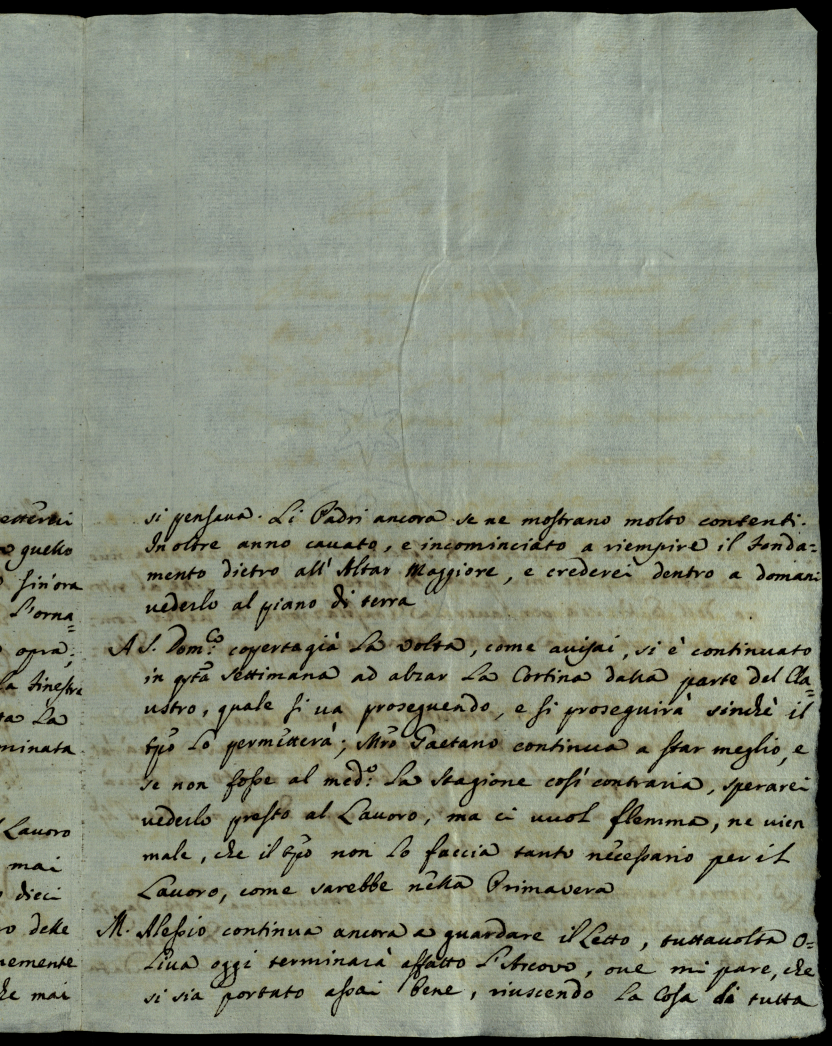 etterei
quello
sin'ora
L'orna=
opra;
la finestra
ta La
minata
Lavoro
mai
dieci
ro delle
uemente
he mai
si pensava. Li Padri ancora se ne mostrano molto contenti.
Inoltre anno cavato, e incominciato a riempire il fonda=
mento dietro all'Altar Maggiore, e crederei dentro a domani
vederlo al piano di terra
A S. Dom.co coperta già La Volta, come avisai, si è continuato
in qsta Settimana ad alzar La Cortina dalla parte del Cla=
ustro, quale si va proseguendo, e si proseguirà sinchè il
tpo Lo permitterà; Mro Gaetano continua a star meglio, e
se non fosse al med.o La Stagione così contraria, sperarei
vederlo presto al Lavoro, ma ci vuol flemma, ne vien
male, che il tpo non Lo faccia tanto necessario per il
Lavoro, come sarebbe nella Primavera
M. Alessio continua ancora a guardare il Letto, tuttavolta O=
Liva oggi terminarà affatto L'Arcovo, ove mi pare, che
si sia portato assai bene, riuscendo La Cosa di tutta